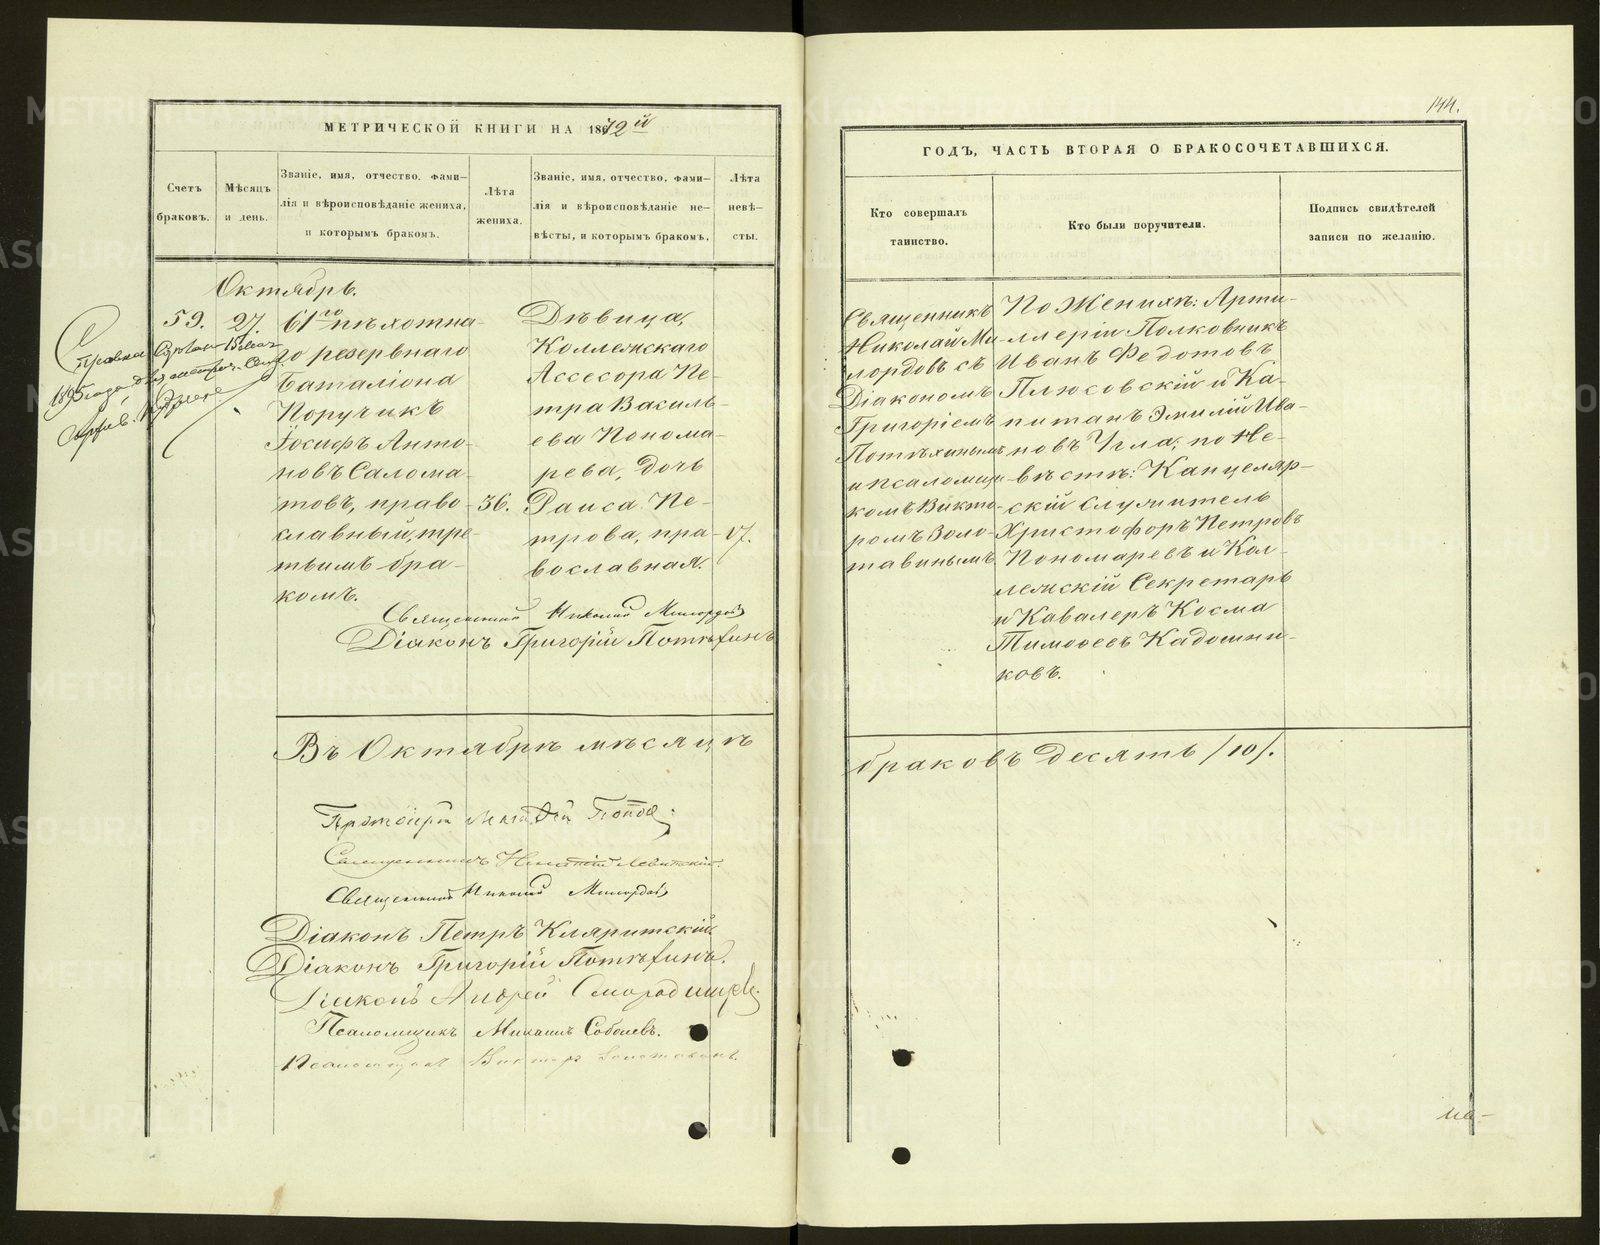 МЕТРИЧЕСКОЙ КНИГИ НА 1872й
Счетъ браковъ.
Мѣсяцъ и день.
Званіе, имя, отчество, фами-
лія и вѣроисповѣданіе жениха,
и которымъ бракомъ.
Лѣта жениха.
Званіе, имя, отчество, фами-
лія и вѣроисповѣданіе не-
вѣсты, и которымъ бракомъ,
Лѣта невѣ-
сты.
Октябрь.
59.
27.
61го пѣхотна-
го резервнаго
Баталіона
Поручикъ
Іосифъ Анто-
новъ Салома-
товъ, право-
славный, тре-
тьимъ бра-
комъ.
36.
Дѣвица,
Коллежскаго
Ассесора Пе-
тра Василь-
ева Понома-
рева, дочь
Раиса Пе-
трова, пра-
вославная.
17.
Священникъ Николай Милордовъ
Діаконъ Григорій Потѣхинъ
Въ Октябрѣ мѣсяцѣ
Протоіерей Попов
Священникъ Левитскій.
Священникъ Николай Милордовъ
Діаконъ Петръ Кляритскій
Діаконъ Григорій Потѣхинъ.
Діаконъ Андрей Смородинцевъ
Псаломщикъ Михаилъ Соболевъ.
Псаломщикъ Викторъ Золотавинъ.
144.
ГОДЪ, ЧАСТЬ ВТОРАЯ О БРАКОСОЧЕТАВШИХСЯ.
Кто совершалъ
таинство.
Кто были поручители.
Подпись свидѣтелей
записи по желанію.
Священникъ
Николай Ми-
лордовъ съ
Діакономъ
Григоріемъ
Потѣхинымъ
и псаломщи-
комъ Викто-
ромъ Золо-
тавинымъ
По Женихѣ: Арти-
ллеріи Полковникъ
Иванъ Федотовъ
Плюсовскій и Ка-
питанъ Эмилій Ива-
новъ Угла; по Не-
вѣстѣ: Канцеляр-
скій Служитель
Христофоръ Петровъ
Пономаревъ и Кол-
лежскій Секретарь
и Кавалеръ Косма
Тимоѳеевъ Кадошни-
ковъ.
браковъ десять /10/.